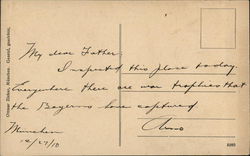 My dear Father:
I inspected this place today.
Everywhere there are war trophies that
the Bayerns have captured
Arno
München
12/27/10
Ottmar Zieher, München Gesetzl. geschützt.